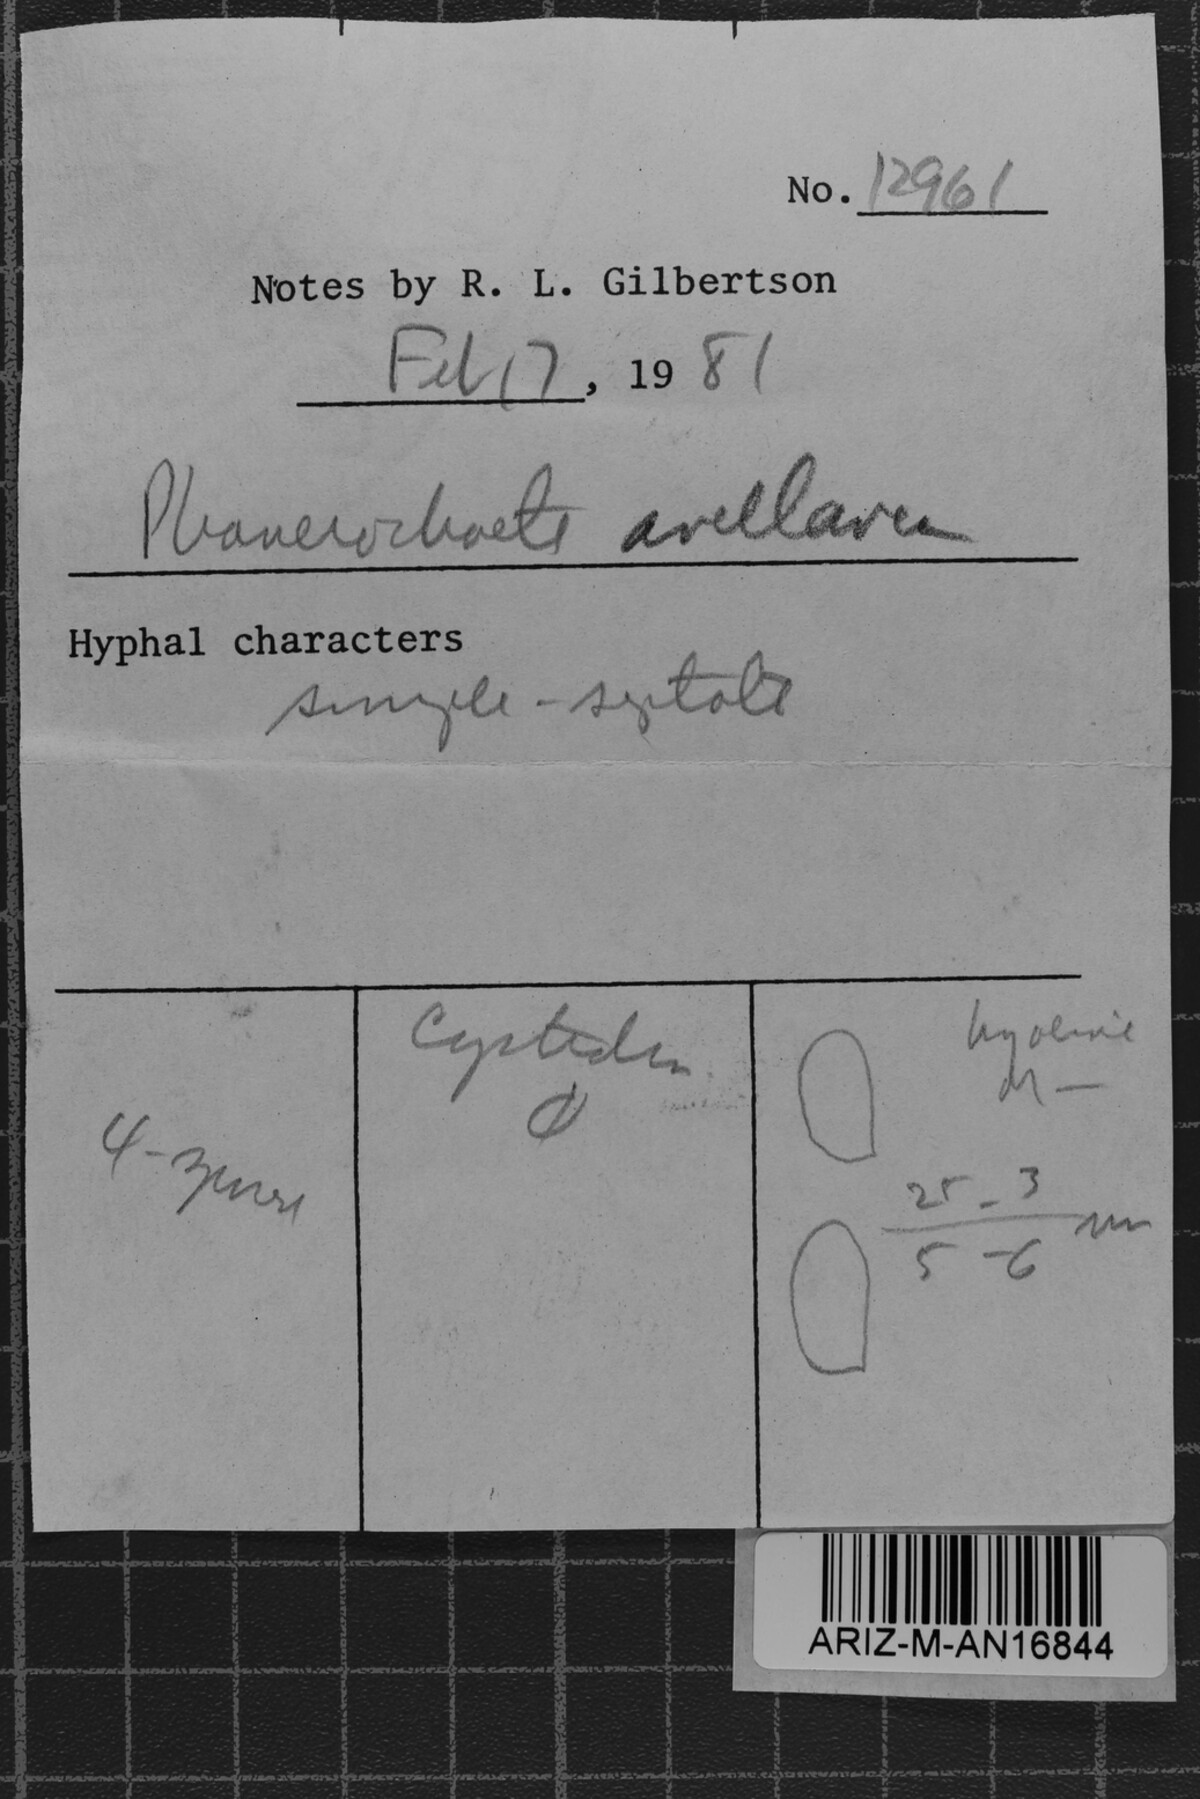 No. 12961
Notes by R. L. Gilbertson
Feb 17, 1981
Phanerochaete avellanea
Hyphal characters
simple-septate
4-spored
Cystidia
hyaline
M -
25 - 3
5 - 6
ARIZ-M-AN16844